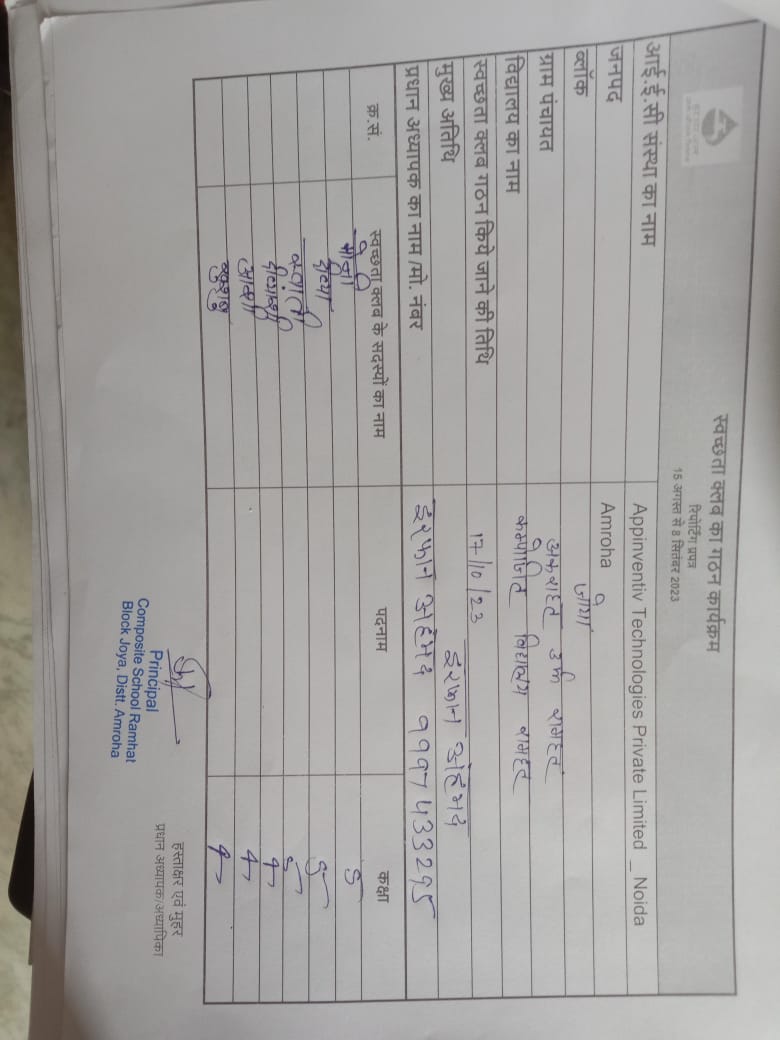 स्वच्छता क्लब का गठन कार्यक्रम
रिपोर्टिंग प्रपत्र
15 अगस्त से 8 सितंबर 2023
आई.ई.सी संस्था का नाम Appinventiv Technologies Private Limited _ Noida
जनपद Amroha
ब्लॉक जोया
ग्राम पंचायत उर्फ रामहट
विद्यालय का नाम कम्पोजिट विद्यालय रामहट
स्वच्छता क्लब गठन किये जाने की तिथि 17/10/23
मुख्य अतिथि इरफान अहमद
प्रधान अध्यापक का नाम /मो. नंबर इरफान अहमद
क्र.सं. स्वच्छता क्लब के सदस्यों का नाम पदनाम कक्षा
5
5
5
4
4
खुशबु 4
हस्ताक्षर एवं मुहर
प्रधान अध्यापक/अध्यापिका
Principal
Composite School Ramhat
Block Joya, Distt. Amroha